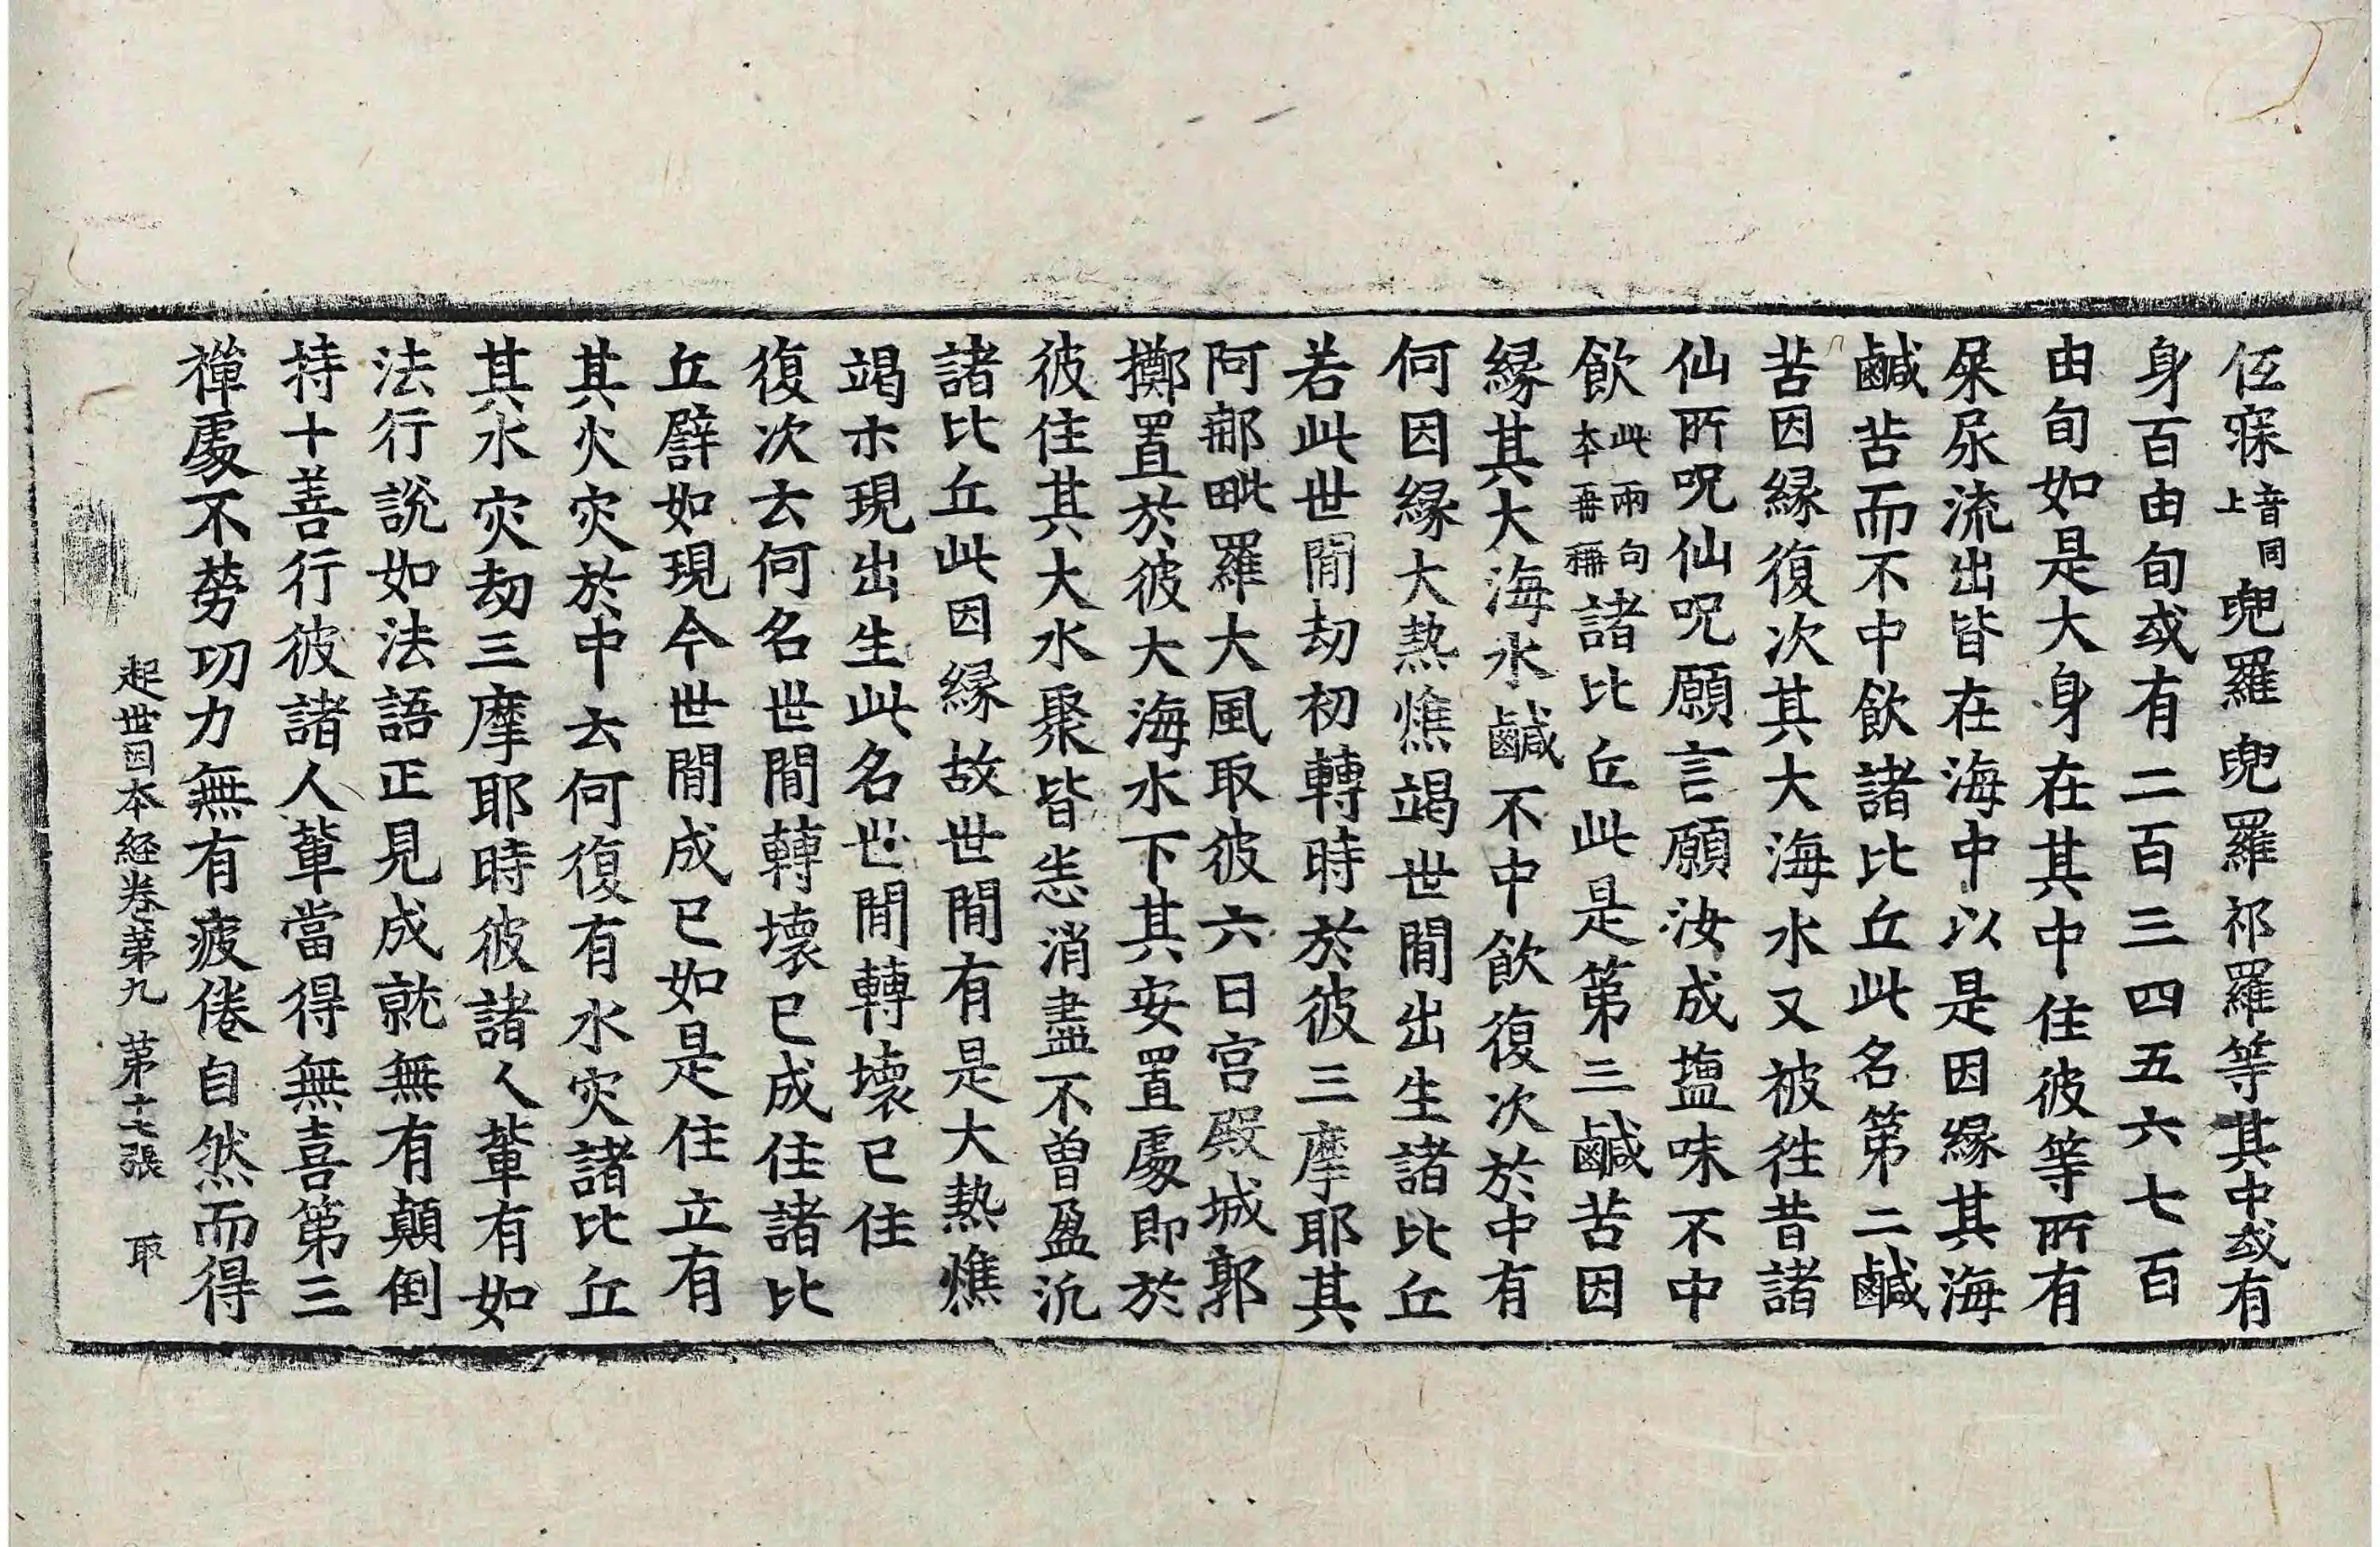 低寐音同上兜羅兜羅祁羅等其中或有
身百由旬或有二百三四五六七百
由旬如是大身在其中住彼等所有
屎尿流出皆在海中以是因緣其海
鹹苦而不中飲諸比丘此名第二鹹
苦因緣復次其大海水又被往昔諸
仙所呪仙呪願言願汝成鹽味不中
飲此兩句本再稱諸比丘此是第三鹹苦因
緣其大海水鹹不中飲復次於中有
何因緣大熱燋竭世間出生諸比丘
若此世間劫初轉時於彼三摩耶其
阿那毗羅大風取彼六日宮殿城郭
擲置於彼大海水下其安置處即於
彼住其大水聚皆悉消盡不曾盈沉
諸比丘此因緣故世間有是大熱燋
竭示現出生此名世間轉壞已住
復次云何名世間轉壞已成住諸比
丘譬如現今世間成已如是住立有
其火灾於中云何復有水灾諸比丘
其水灾劫三摩耶時彼諸人輩有如
法行說如法語正見成就無有顛倒
持十善行彼諸人輩當得無喜第三
禪處不勞功力無有疲倦自然而得
起世因本経卷第九 第十七張 取